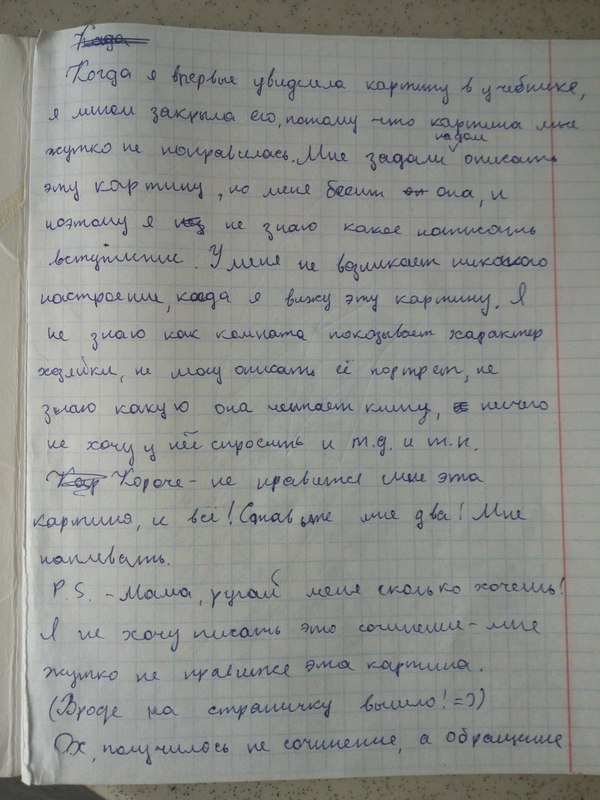 Когда
Когда я впервые увидила картину в учебнике,
я мигом закрыла его, потому что картина мне
жутко не понравилась. Мне задали надом описать
эту картину, но меня бесит он она, и
поэтому я не знаю какое написать
вступление. У меня не возникает никакого
настроение, когда я вижу эту картину. Я
не знаю как комната показывает характер
хозяйки, не могу описать её портрет, не
знаю какую она читает книгу, ничего
не хочу у неё спросить и т.д. и т.п.
Короче - не нравится мне эта
картина, и всё! Ставьте мне два! Мне
наплевать.
P.S. - Мама, ругай меня сколько хочешь!
Я не хочу писать это сочинение - мне
жутко не нравится эта картина.
(Вроде на страничку вышло! =))
Ох, получилось не сочинение, а обращение